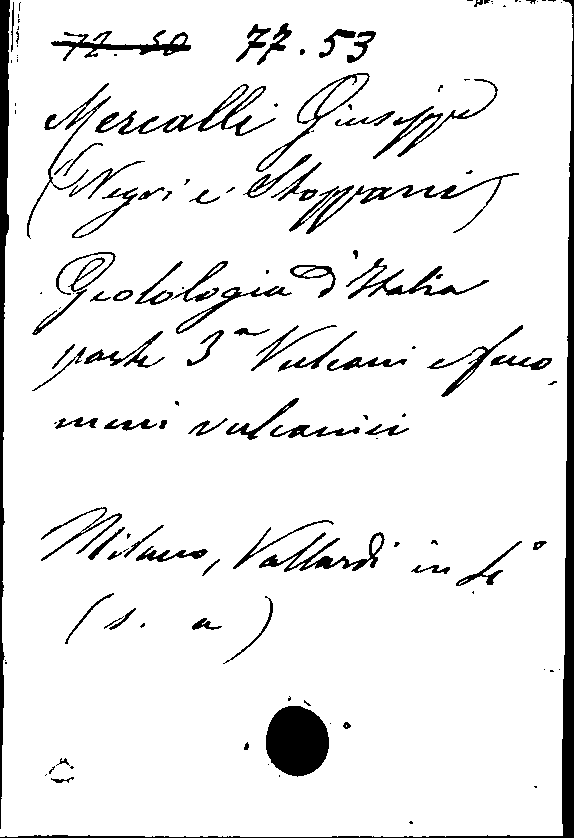 72.50 77.53
Mercalli Giuseppe
(Negri e Stoppani)
Geolologia d'Italia
parte 3ª Vulcani e feno,
meni vulcanici
Milano, Vallardi in 4°
(s. a)